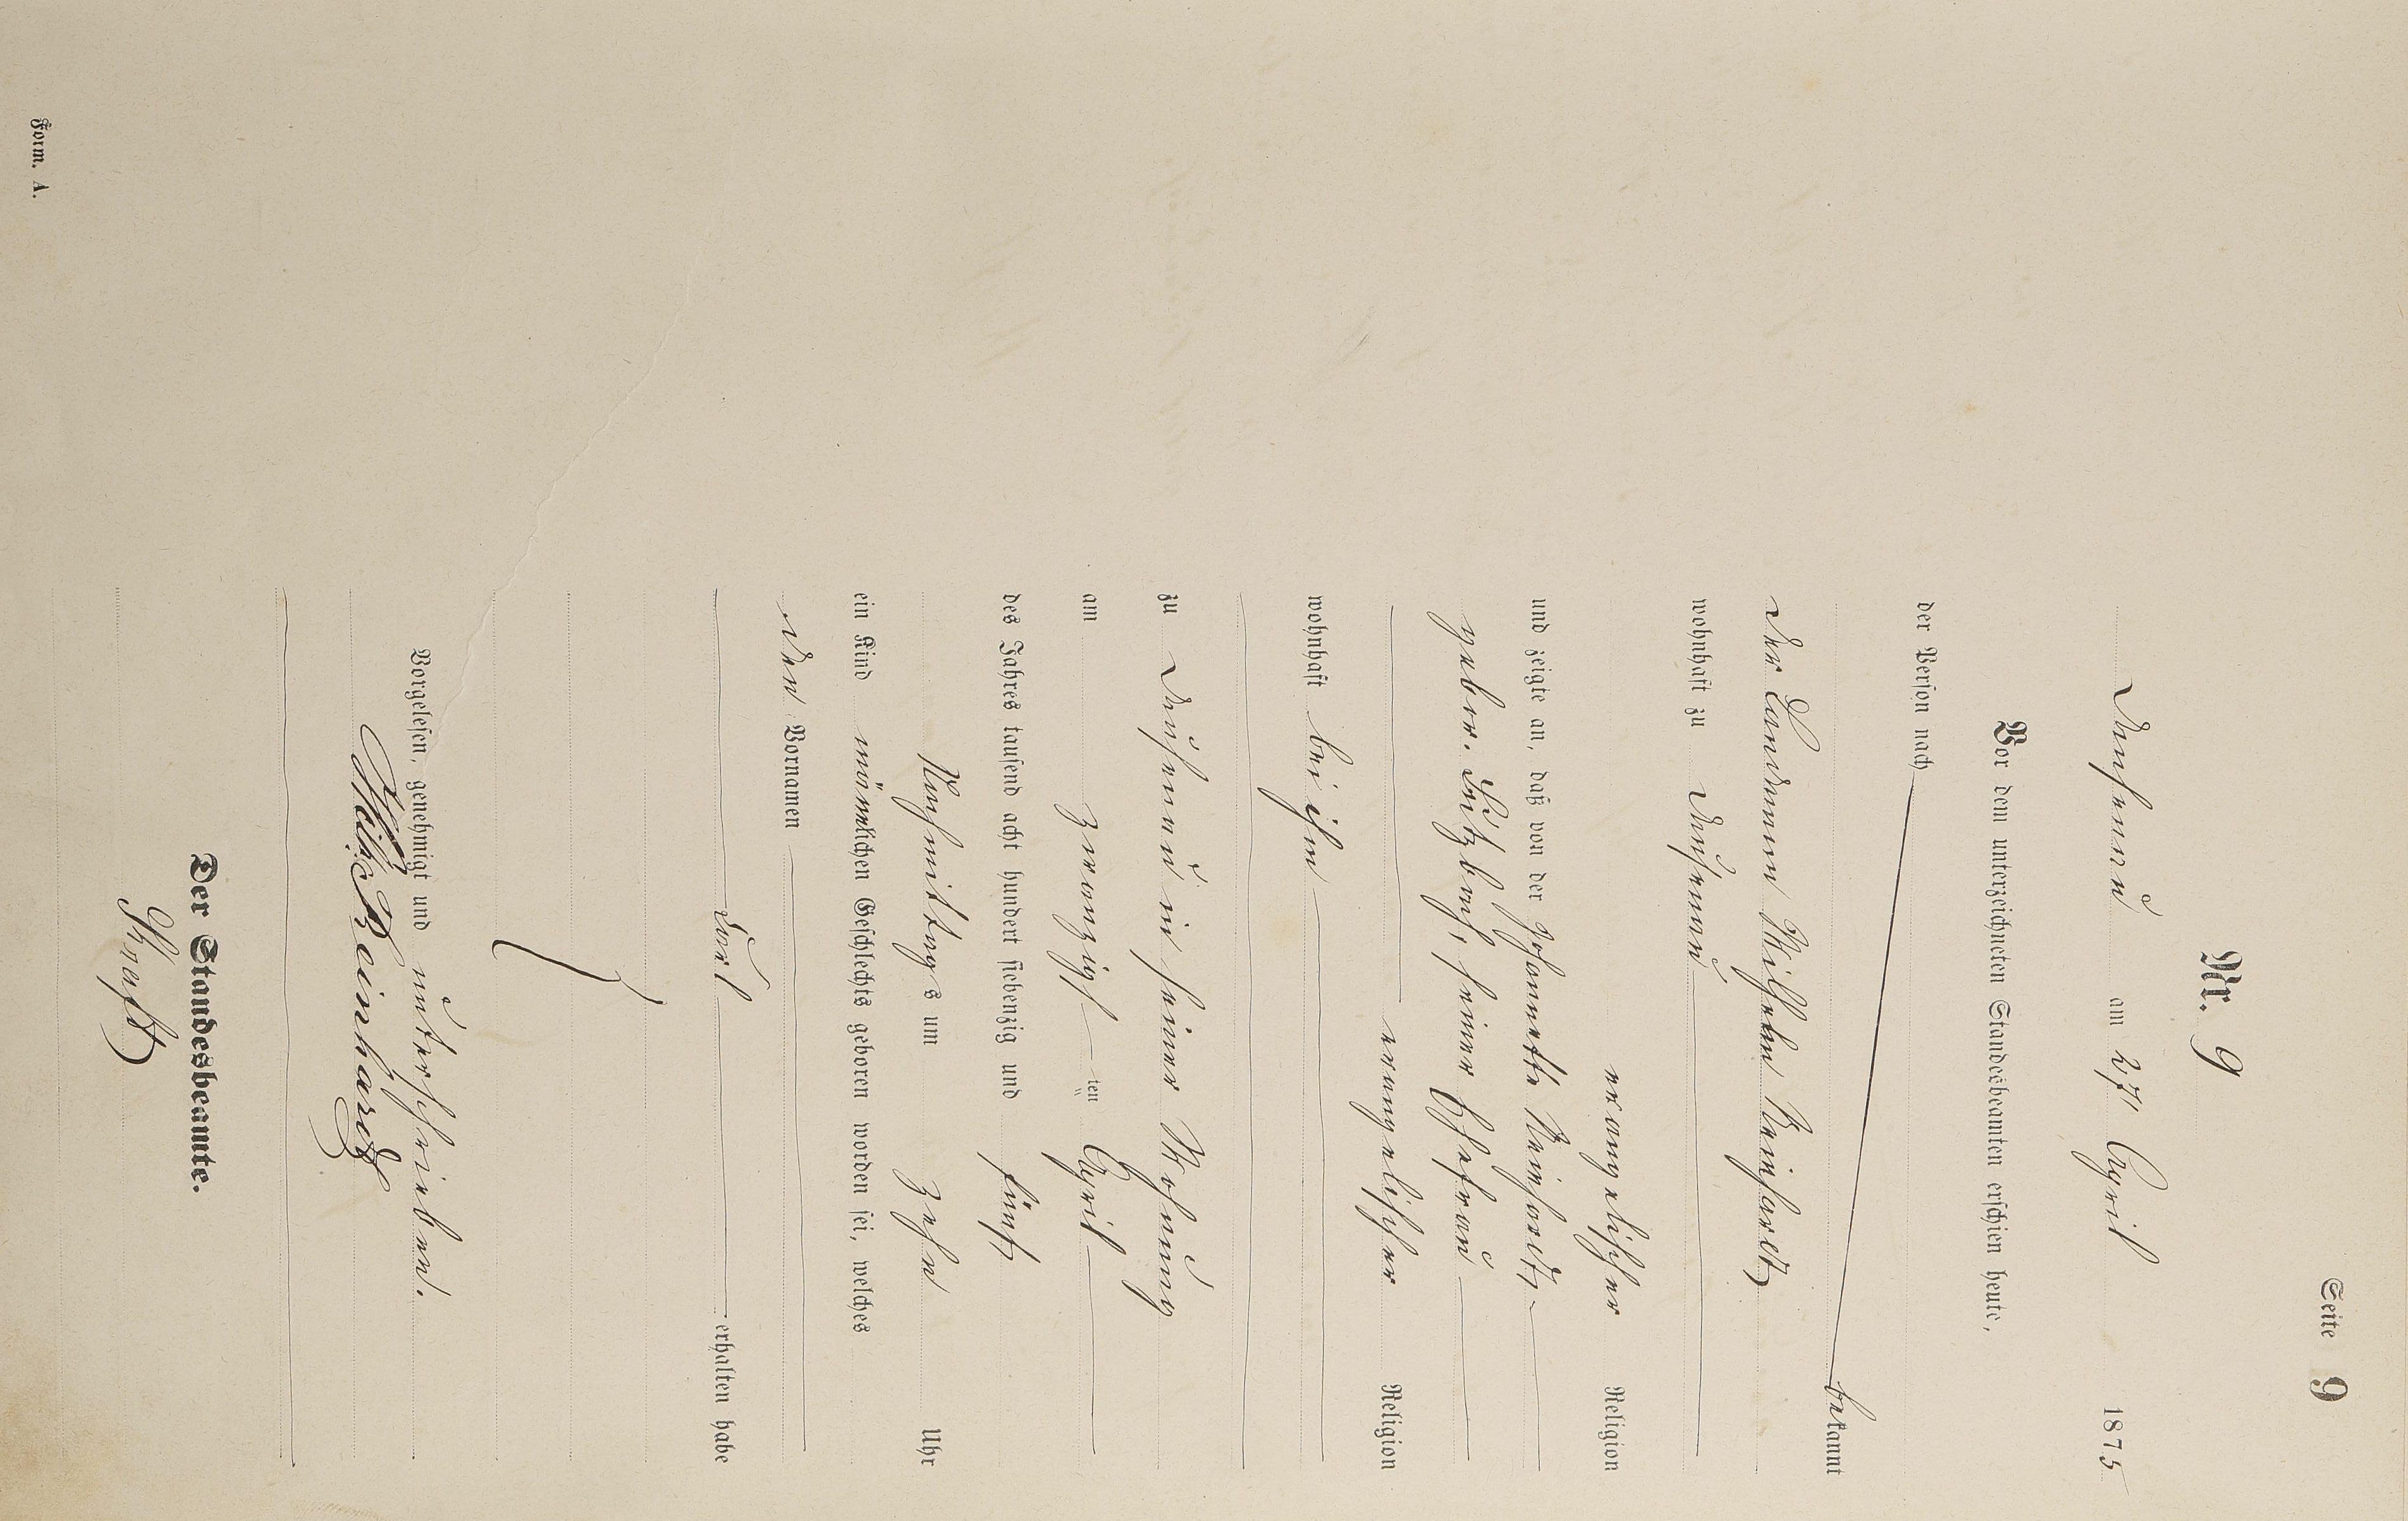 Seite 9
Nr. 9
Dausenau am 27 April 1875
Vor dem unterzeichneten Standesbeamten erschien heute,
der Person nach
bekannt
der Landmann Wilhelm Reinhardt
wohnhaft zu Dausenau
evangelischer Religion
und zeigte an, daß von der Johannette Reinhardt,
gebor. Lützbach, seiner Ehefrau
evangelischer Religion
wohnhaft bei ihm
zu Dausenau in seiner Wohnung
am zwanzigsten April
des Jahres tausend acht hundert siebenzig und fünf
Nachmittags um zehn Uhr
ein Kind männlichen Geschlechts geboren worden sei, welches
den Vornamen
Carl erhalten habe
Vorgelesen, genehmigt und unterschrieben.
Wilh. Reinhardt
Der Standesbeamte.
Form. A.